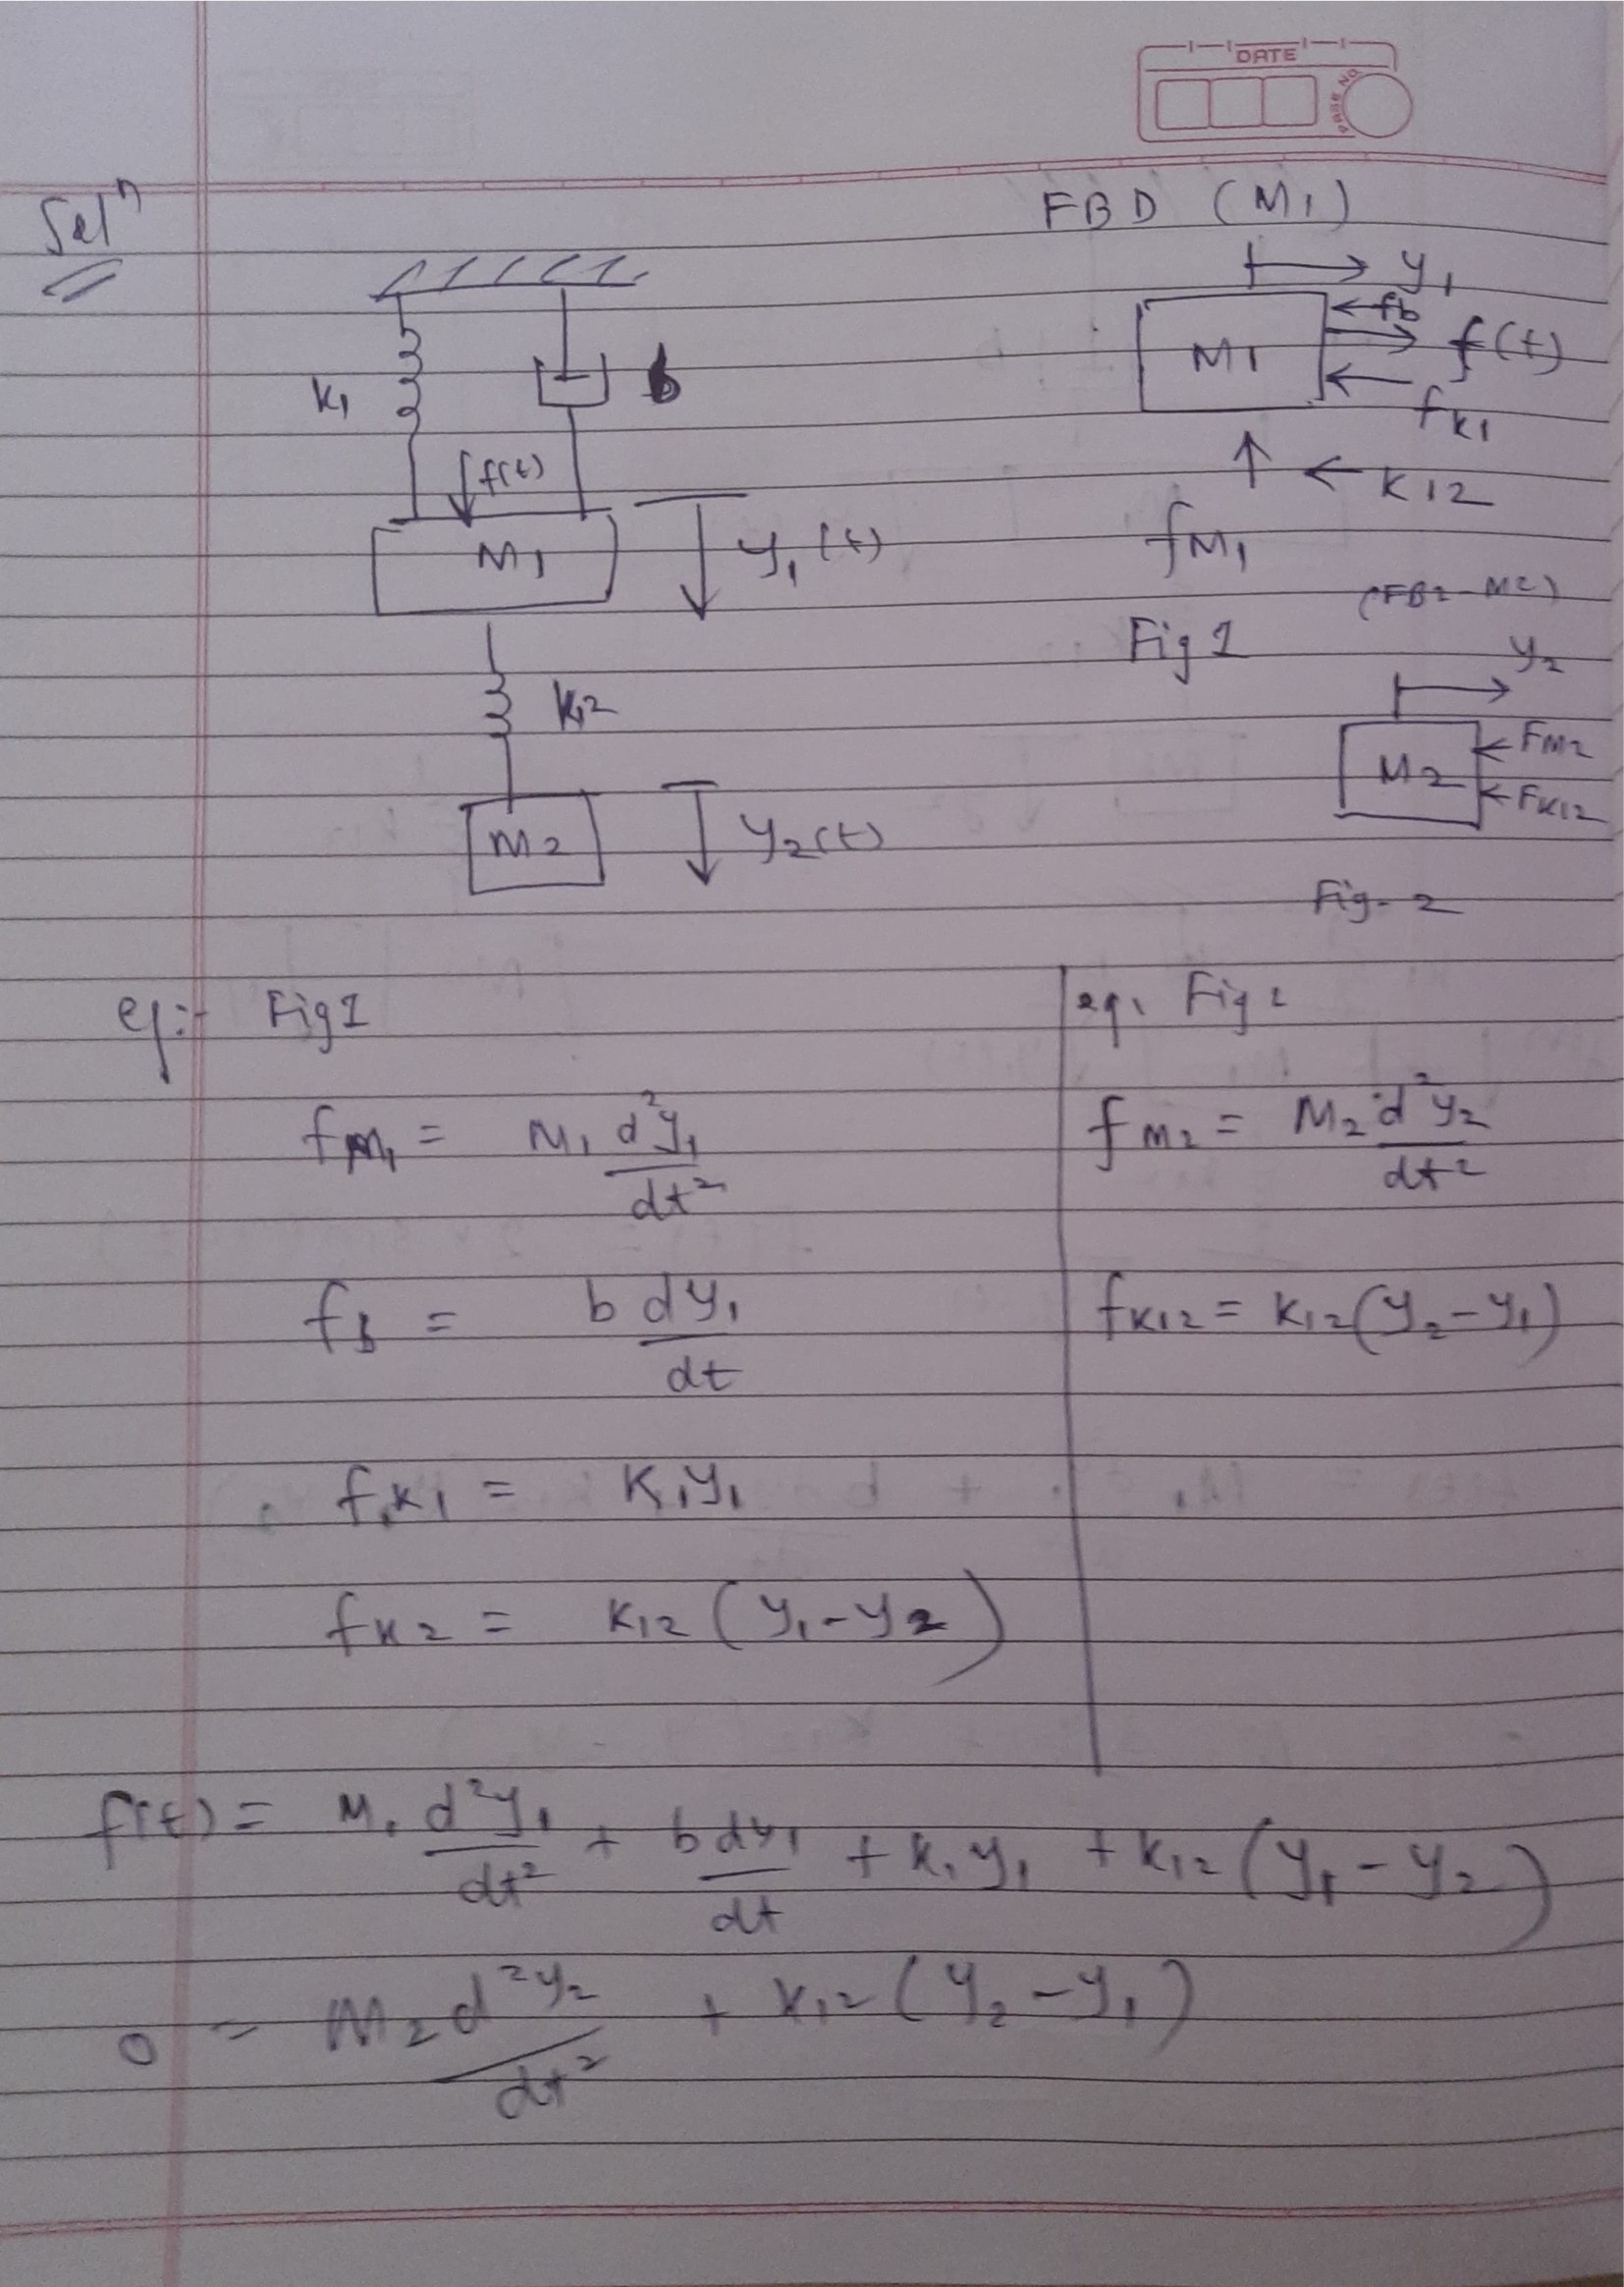 DATE
PAGE NO
Solⁿ
FBD (M1)
y1
fb
M1
f(t)
fk1
K12
fM1
Fig 1
K1
b
f(t)
M1
y1(t)
K12
M2
y2(t)
y2
M2
FM2
FK12
Fig-2
eq:- Fig1
fM1 = M1 d²y1/dt²
fb = b dy1/dt
fK1 = K1y1
fK2 = K12(y1-y2)
eq. Fig 2
fM2 = M2 d²y2/dt²
fK12 = K12(y2-y1)
f(t) = M1 d²y1/dt² + b dy1/dt + K1y1 + K12(y1-y2)
0 = M2 d²y2/dt² + K12(y2-y1)